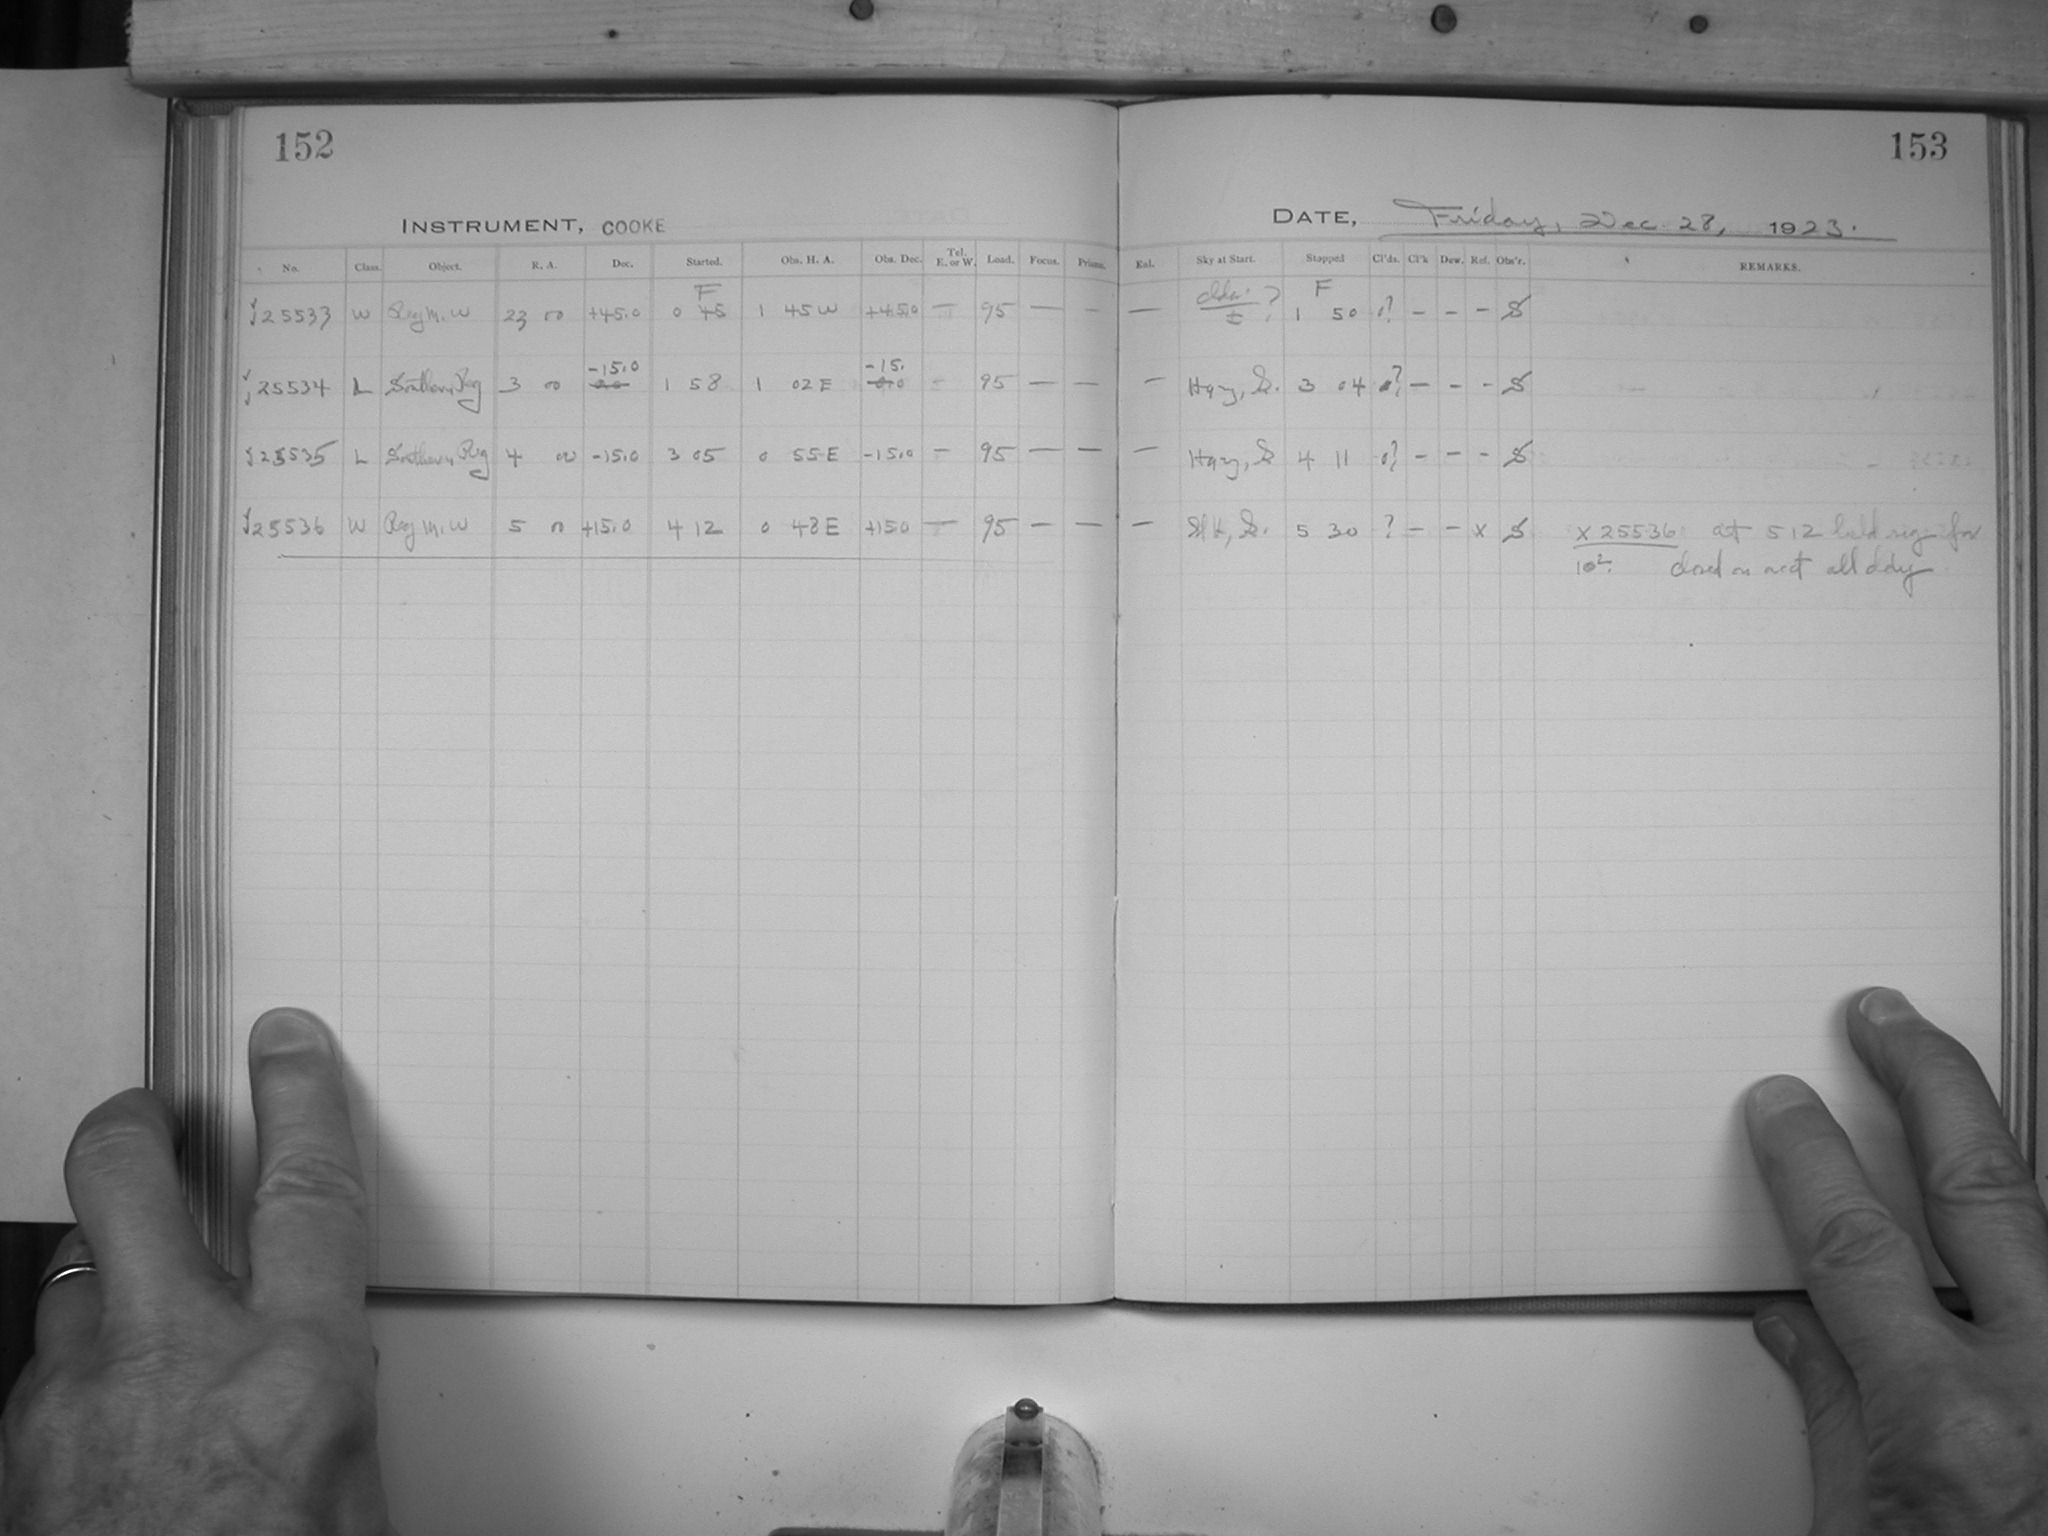 152
153
INSTRUMENT, COOKE
DATE, Friday, Dec 28, 1923.
No. Class. Object. R. A. Dec. Started. Obs. H. A. Obs. Dec. Tel. E. or W. Load. Focus. Prisms. Enl. Sky at Start. Stopped Cl'ds. Cl'k Dew. Ref. Obs'r. REMARKS.
F F
√25533 W Reg M. W 23 00 +45.0 0 45 1 45 W +45.0 — 95 — — — ? 1 50 0? — — — S
-15.0 -15.
√25534 L Southern Reg 3 00 1 58 1 02 E — 95 — — — Hazy, S. 3 04 0? — — — S
√25535 L Southern Reg 4 00 -15.0 3 05 0 55 E -15.0 — 95 — — — Hazy, S 4 11 0? — — — S
√25536 W Reg M. W 5 00 +15.0 4 12 0 48 E +150 — 95 — — — S. 5 30 ? — — X S X 25536 at 5 12 held reg for
closed on acct all